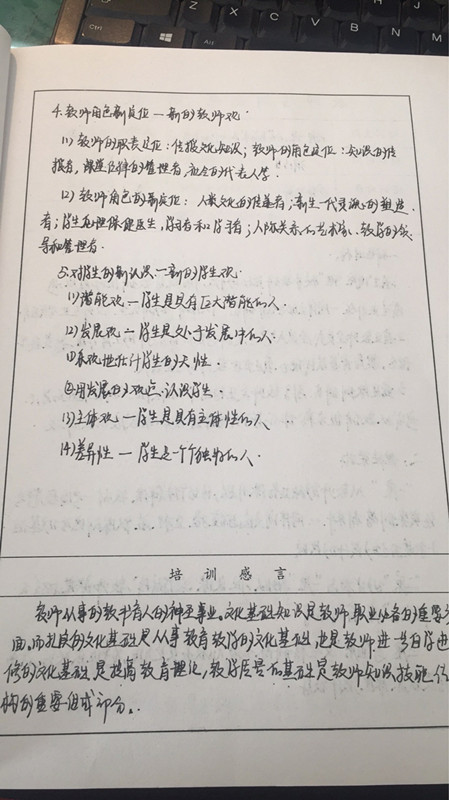 4. 教师角色新定位 — 新的教师观:
(1) 教师的职责定位:传授文化知识;教师的角色定位:知识的传
授者,课堂纪律的管理者,社会的代表人等.
(2) 教师角色的新定位: 人类文化的传递者;新生一代灵魂的塑造
者;学生心理保健医生,学习者和学习者;人际关系的艺术家、教学的领
导和管理者.
5. 对学生的新认识 — 新的学生观.
(1) 潜能观 — 学生是具有巨大潜能的人.
(2) 发展观 — 学生是处于发展中的人.
① 乐观地估计学生的天性.
② 用发展的观点认识学生.
(3) 主体观 — 学生是具有主体性的人
(4) 差异性 — 学生是一个个独特的人.
培 训 感 言
教师从事的教书育人的神圣事业.文化基础知识是教师职业必备的重要方
面,而扎实的文化基础是从事教育教学的文化基础,也是教师进一步自学进
修的文化基础是提高教育理论,教学质量的基础是教师知识技能结
构的重要组成部分.